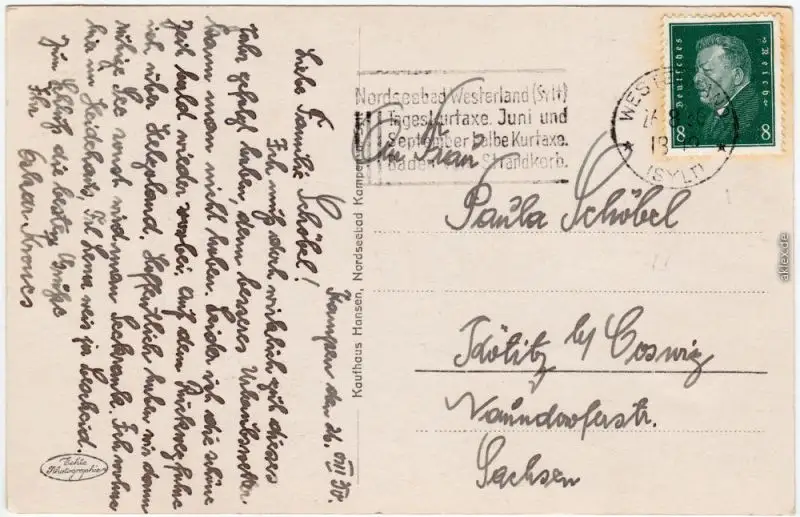 Kampen den 26. VIII 30.
Liebe Familie Schöbel!
Ich muß doch wirklich gut dieses
Jahr gefühlt haben, denn besseres Urlaubswetter
kann man nicht haben. Leider ist die schöne
Zeit bald wieder vorbei, auf dem Rückweg fahre
ich über Helgoland. Hoffentlich haben wir dann
ruhige See sonst wird man Seekrank. Ich wohne
hier im Heidehaus, Frl. weis ja Bescheid.
Zum Schluß die besten Grüße
Ihr
Kaufhaus Hansen, Nordseebad Kampen
Echte
Photographie
Nordseebad Westerland (Sylt)
Tageskurtaxe. Juni und
September halbe Kurtaxe.
Baden vom Strandkorb.
WESTERLAND
(SYLT)
Deutsches Reich
8 8
An Frau
Paula Schöbel
Kötitz b/ Coswig
Naundorferstr.
Sachsen
aklex.de